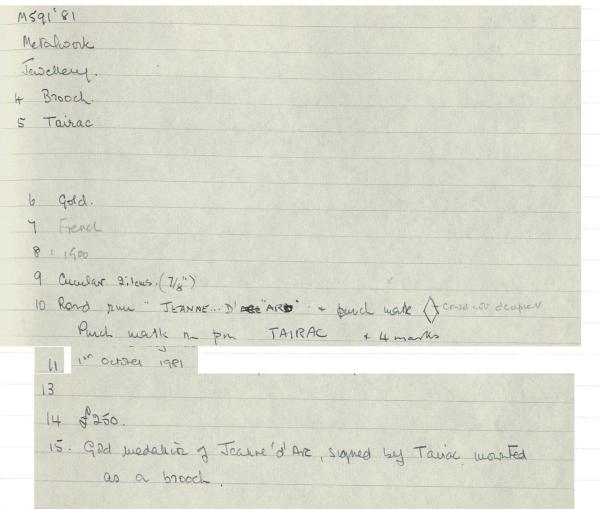 M591'81
Metalwork
Jewellery.
4 Brooch.
5 Tairac
6 Gold.
7 French
8 : 1900
9 Circular (7/8")
10 Round "JEANNE... D' ARC" + punch mark could not decipher
Punch mark on pin TAIRAC + 4 marks
11 1st October 1981
13
14 £250.
15. Gold medallion of Jeanne'd'Arc, signed by Tairac mounted
as a brooch.